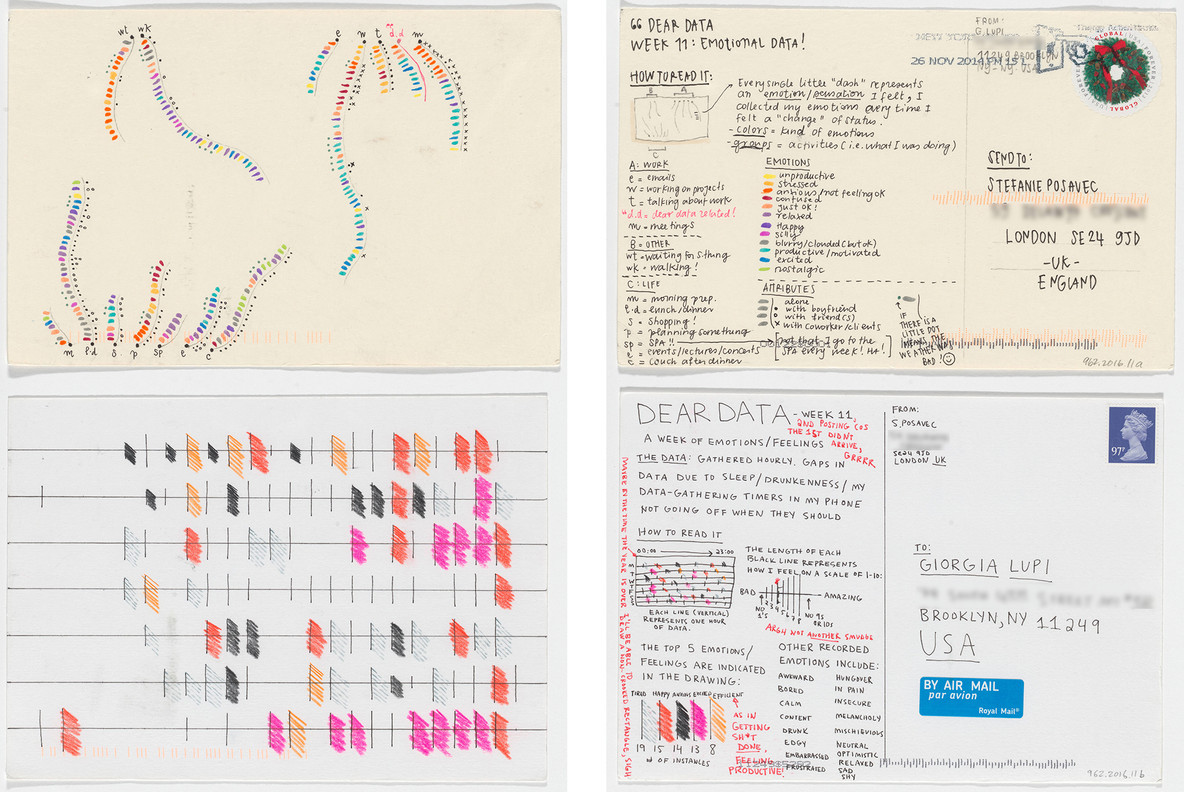 wt wk
e w t d.d m
m l·d s p sp e c
66 DEAR DATA
WEEK 11: EMOTIONAL DATA!
FROM:
G. LUPI
11249 BROOKLYN
NY - NY. USA
NEW YORK
26 NOV 2014 PM 15 L
GLOBAL
FOREVER
USA
GLOBAL
HOW TO READ IT:
B A
C
Every single little "dash" represents
an "emotion/sensation I felt, I
collected my emotions every time I
felt a "change" of status.
- colors = kind of emotions
- groups = activities (i.e. what I was doing)
A: WORK
e = emails
w = working on projects
t = talking about work
d.d = dear data related!
m = meetings
B = OTHER
wt = waiting for s.thing
wk = walking!
C: LIFE
m = morning prep.
l·d = lunch/dinner
s = shopping!
p = planning something
sp = SPA !!
e = events/lectures/concerts
c = couch after dinner
not that I go to the
SPA every week! HA!
EMOTIONS
unproductive
stressed
anxious/not feeling ok
confused
just ok!
relaxed
happy
silly
blurry/clouded (but ok)
productive/motivated
excited
nostalgic
ATTRIBUTES
alone
with boyfriend
with friend(s)
with coworker/clients
IF
THERE IS A
LITTLE DOT
MEANS THE
WEATHER WAS
BAD!
SEND TO:
STEFANIE POSAVEC
LONDON SE24 9JD
-UK-
ENGLAND
962.2016.11a
DEAR DATA - WEEK 11,
2ND POSTING COS
THE 1ST DIDN'T
ARRIVE,
GRRRR
A WEEK OF EMOTIONS/FEELINGS
THE DATA: GATHERED HOURLY. GAPS IN
DATA DUE TO SLEEP/DRUNKENNESS/MY
DATA-GATHERING TIMERS IN MY PHONE
NOT GOING OFF WHEN THEY SHOULD
MAYBE BY THE TIME THE YEAR IS OVER I'LL BE ABLE TO DRAW A NON-CROOKED RECTANGLE, SIGH
HOW TO READ IT
00:00 23:00
M
T
W
T
F
S
S
EACH LINE (VERTICAL)
REPRESENTS ONE HOUR
OF DATA.
THE LENGTH OF EACH
BLACK LINE REPRESENTS
HOW I FEEL ON A SCALE OF 1-10:
BAD AMAZING
NO 1'S
2 3 4 5 6 7 8
NO 9S
OR 10S
ARGH NOT ANOTHER SMUDGE
THE TOP 5 EMOTIONS/
FEELINGS ARE INDICATED
IN THE DRAWING:
TIRED HAPPY ANXIOUS EXCITED EFFICIENT
19 15 14 13 8
# OF INSTANCES
AS IN
GETTING
SH*T
DONE,
FEELING
PRODUCTIVE!
OTHER RECORDED
EMOTIONS INCLUDE:
AWKWARD
BORED
CALM
CONTENT
DRUNK
EDGY
EMBARRASSED
FRUSTRATED
HUNGOVER
IN PAIN
INSECURE
MELANCHOLY
MISCHIEVIOUS
NEUTRAL
OPTIMISTIC
RELAXED
SAD
SHY
FROM:
S. POSAVEC
SE24 9JD
LONDON UK
97P
TO:
GIORGIA LUPI
BROOKLYN, NY 11249
USA
BY AIR MAIL
par avion
Royal Mail®
962.2016.11b